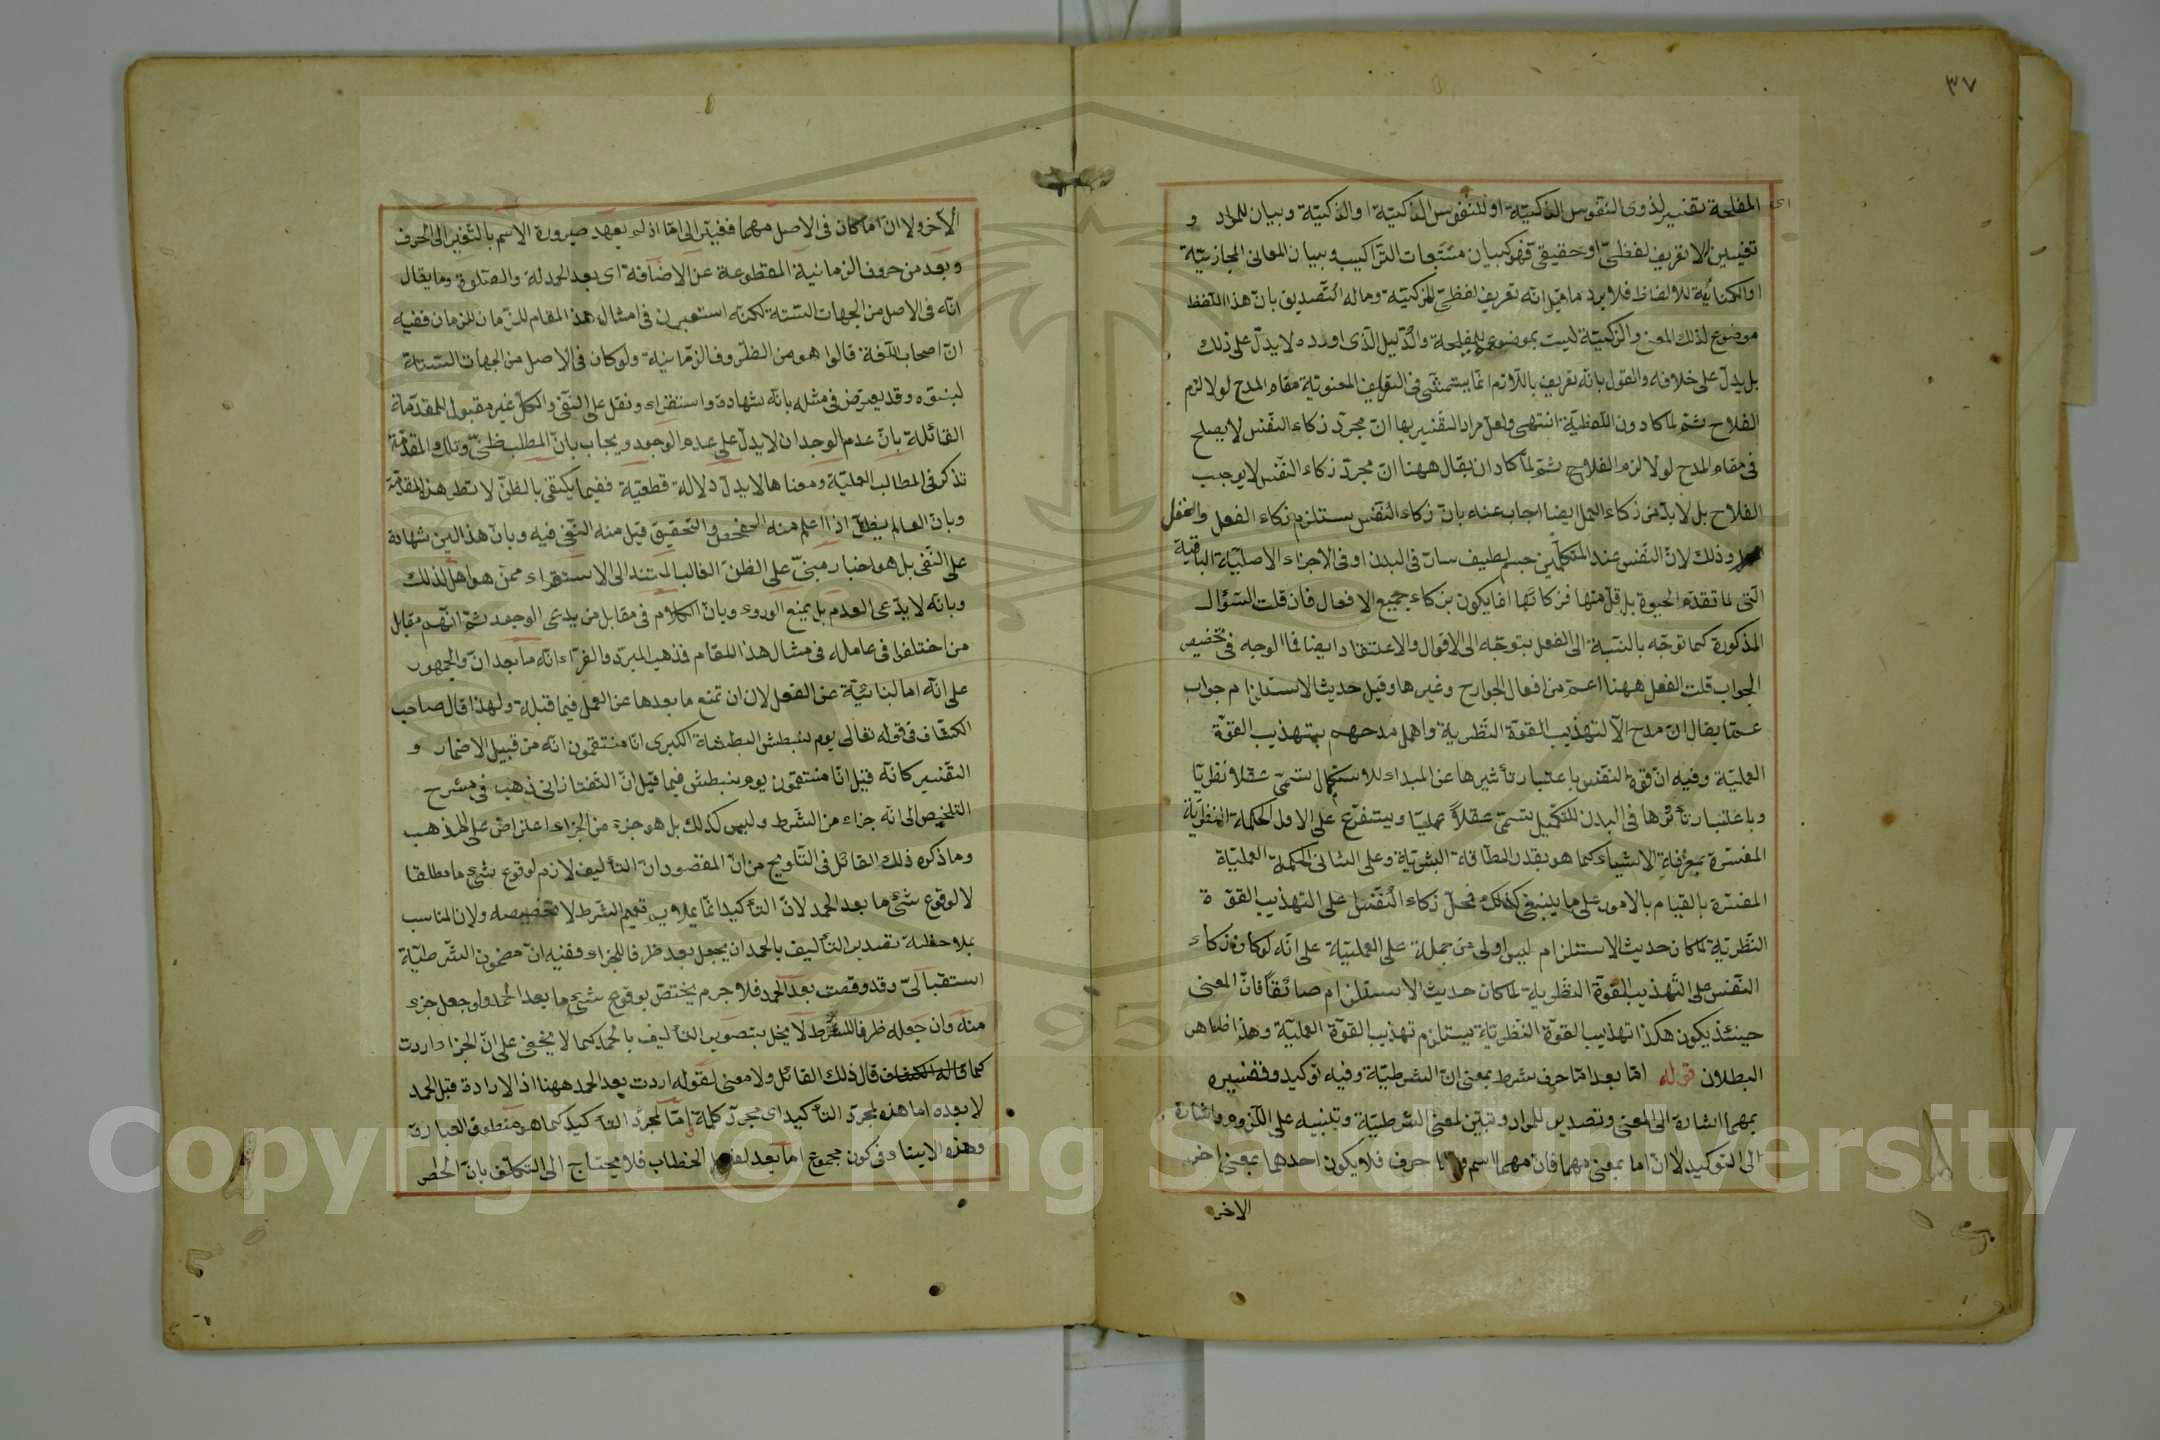 ٣٧
المفلحة تفسير لذوى النفوس الذكيّة او للنفوس الذكيّة او الذكيّة وبيان للمراد و
تفسير لا تعريف لفظىّ او حقيقىّ فهو كبيان مستتبعات التراكيب وبيان المعانى المجازيّة
او الكنائية للالفاظ فلا يرد ما قيل انه تعريف لفظىّ للزكيّة وماله التّصديق بانّ هذا اللفظ
موضوع لذلك المعنى والزكيّة ليست بموضوع للمفلحة والدّليل الّذى اورده لا يدلّ على ذلك
بل يدلّ على خلافه والقول بانّه تعريف باللّازم انّما يتمشّى فى التعاريف المعنويّة مقام المدح لولا لزم
الفلاح ثمّ لما كا دون اللّفظيّة انتهى ولعلّ مراد التّفسير بها انّ مجرّد زكاء النّفس لا يصلح
فى مقام المدح لولا لزم الفلاح ثمّ لمّا كاد ان يقال ههنا انّ مجرّد زكاء النّفس لا يوجب
الفلاح بل لا بدّ من زكاء العمل ايضا اجاب عنه بانّ زكاء النّفس يستلزم زكاء الفعل
وذلك لانّ النّفس عند المتكلّمين جسم لطيف سار فى البدن او فى الاجزاء الاصليّة الباقية
الّتى لم تقدم الحيوة بل قلّ منها فزكاتها انما يكون بزكاء جميع الافعال فان قلت السّؤال
المذكورة كما توجّه بالنّسبة الى الفعل يتوجّه الى الاقوال والاعتقاد ايضا فما الوجه فى تخصيص
الجواب قلت الفعل ههنا اعمّ من افعال الجوارح وغيرها وقيل حديث الاستلزام جواب
عمّا يقال انّ مدح الآل تهذيب القوة النّظريّة واهمل مدحهم بتهذيب القوّة
العمليّة وفيه انّ قوة النّفس باعتبار تأثيرها عن المبداء للاستكمال تسمّى عقلا نظريّا
وباعتبار تأثرها فى البدن للتكميل تسمّى عقلاً عمليّا ويتفرّع على الاول الحكمة النظريّة
المفسّرة بمعرفة الاشياء كما هو بقدر الطّاقة البشريّة وعلى الثانى الحكمة العمليّة
المفسّرة بالقيام بالامور على ما ينبغى كذلك فحلّ زكاء النّفس على التهذيب القوّة
النّظريّة لما كان حديث الاستلزام ليس اولى من حمله على العمليّة على انّه لو كان زكاء
النّفس على التّهذيب القوة النّظريّة لما كان حديث الاستلزام صادقاً فانّ المعنى
حينئذ يكون هكذا تهذيب القوّة النّظريّة يستلزم تهذيب القوة العمليّة وهذا ظاهر
البطلان قوله امّا بعد امّا حرف شرط بمعنى انّ الشرطيّة وفيه توكيد وتفسيره
بمهما اشارة الى المعنى وتصدير للمراد وتبيّن لمعنى الشرطيّة وتنبيه على اللّزوم واشارة
الى التوكيد لا انّ اما بمعنى مهما فانّ مهما اسم حرف فلا يكون احدهما بمعنى
الاخر
الآخر ولا ان اما كان فى الاصل مهما فغيّر الى امّا اذ لم يعهد صيرورة الاسم بالتّغير الى الحرف
وبعد من حروف الزمانيّة المقطوعة عن الاضافة اى بعد الحمدلة والصّلوة وما يقال
انّه فى الاصل من الجهات السّتة لكنّه استعير فى امثال هذا المقام للزمان ففيه
انّ اصحاب اللّغة قالوا هو من الظّروف الزّمانيّة ولو كان فى الاصل من الجهات السّتة
لبيّنوه وقد يعترض فى مثله بانّه شهادة واستقراء ونقل على النّفى والكلّ غير مقبول للمقدّمة
القائلة بانّ عدم الوجدان لا يدلّ على عدم الوجود ويجاب بانّ المطلب ظنّىّ وتلك المقدّمة
تذكر فى المطالب العمليّة ومعناها لا يدلّ دلالة قطعيّة ففيما يكتفى بالظنّ لا هذه المقدّمة
وبانّ العالم اذا علم منه والتّحقيق قبل منه النّفى فيه وبانّ هذا ليس شهادة
على النّفى بل هو اخبار مبنىّ على الظنّ الغالب المستند الى الاستقراء ممّن هو اهل لذلك
وبانّه لا يدّعى العدم بل يمنع الورود وبانّ الكلام فى مقابل من يدعى الوجود ثمّ انّهم مقابل
من اختلفوا فى عامله فى مثال هذا المقام فذهب المبرّد والفرّاء انّه ما بعد انّ والجمهور
على انّه اما لنيابته عن الفعل لانّ ان تمنع ما بعدها عن العمل فيما قبله ولهذا قال صاحب
الكشّاف فى قوله تعالى يوم نبطش البطشة الكبرى انّا منتقمون انّه من قبيل الاضمار و
التّفسير كانّه قيل انّا منتقمون يوم نبطش فما قيل انّ التّفتازانى ذهب فى شرح
التلخيص الى انّه جزاء من الشّرط وليس كذلك بل هو جزء من الجزاء اعتراض على المذهب
وما ذكره ذلك القائل فى التّلويح من انّ المقصود انّ التأليف لازم لوقوع شىء ما مطلقا
لا لوقوع شىء ما بعد الحمد لانّ التأكيد انّما يلايم تعميم الشّرط لا تخصيصه ولان المناسب
بملاحظة تصدير التأليف بالحمد ان يجعل بعد ظرفا للجزاء ففيه انّ مضمون الشّرطيّة
استقبالىّ وقد وقعت بعد الحمد فلا جرم يختصّ بوقوع شىء ما بعد الحمد ولو جعل جزء
منه وان جعله ظرفا للشّرط لا يخل بتصوير التأليف بالحمد كما لا يخفى على انّ الجزاء اردت
كما قاله الكشاف قال ذلك القائل ولا معنى لقوله اردت بعد الحمد ههنا اذ الارادة قبل الحمد
لا بعده اما هذه لمجرّد التأكيد اى مجرّد كلمة امّا لمجرّد التأكيد كما هو منطوق العبارة
وهذه الايتاء فى كون مجموع امّا بعد الخطاب فلا يحتاج الى التكلّف بانّ
Copyright © King Saud University
1957